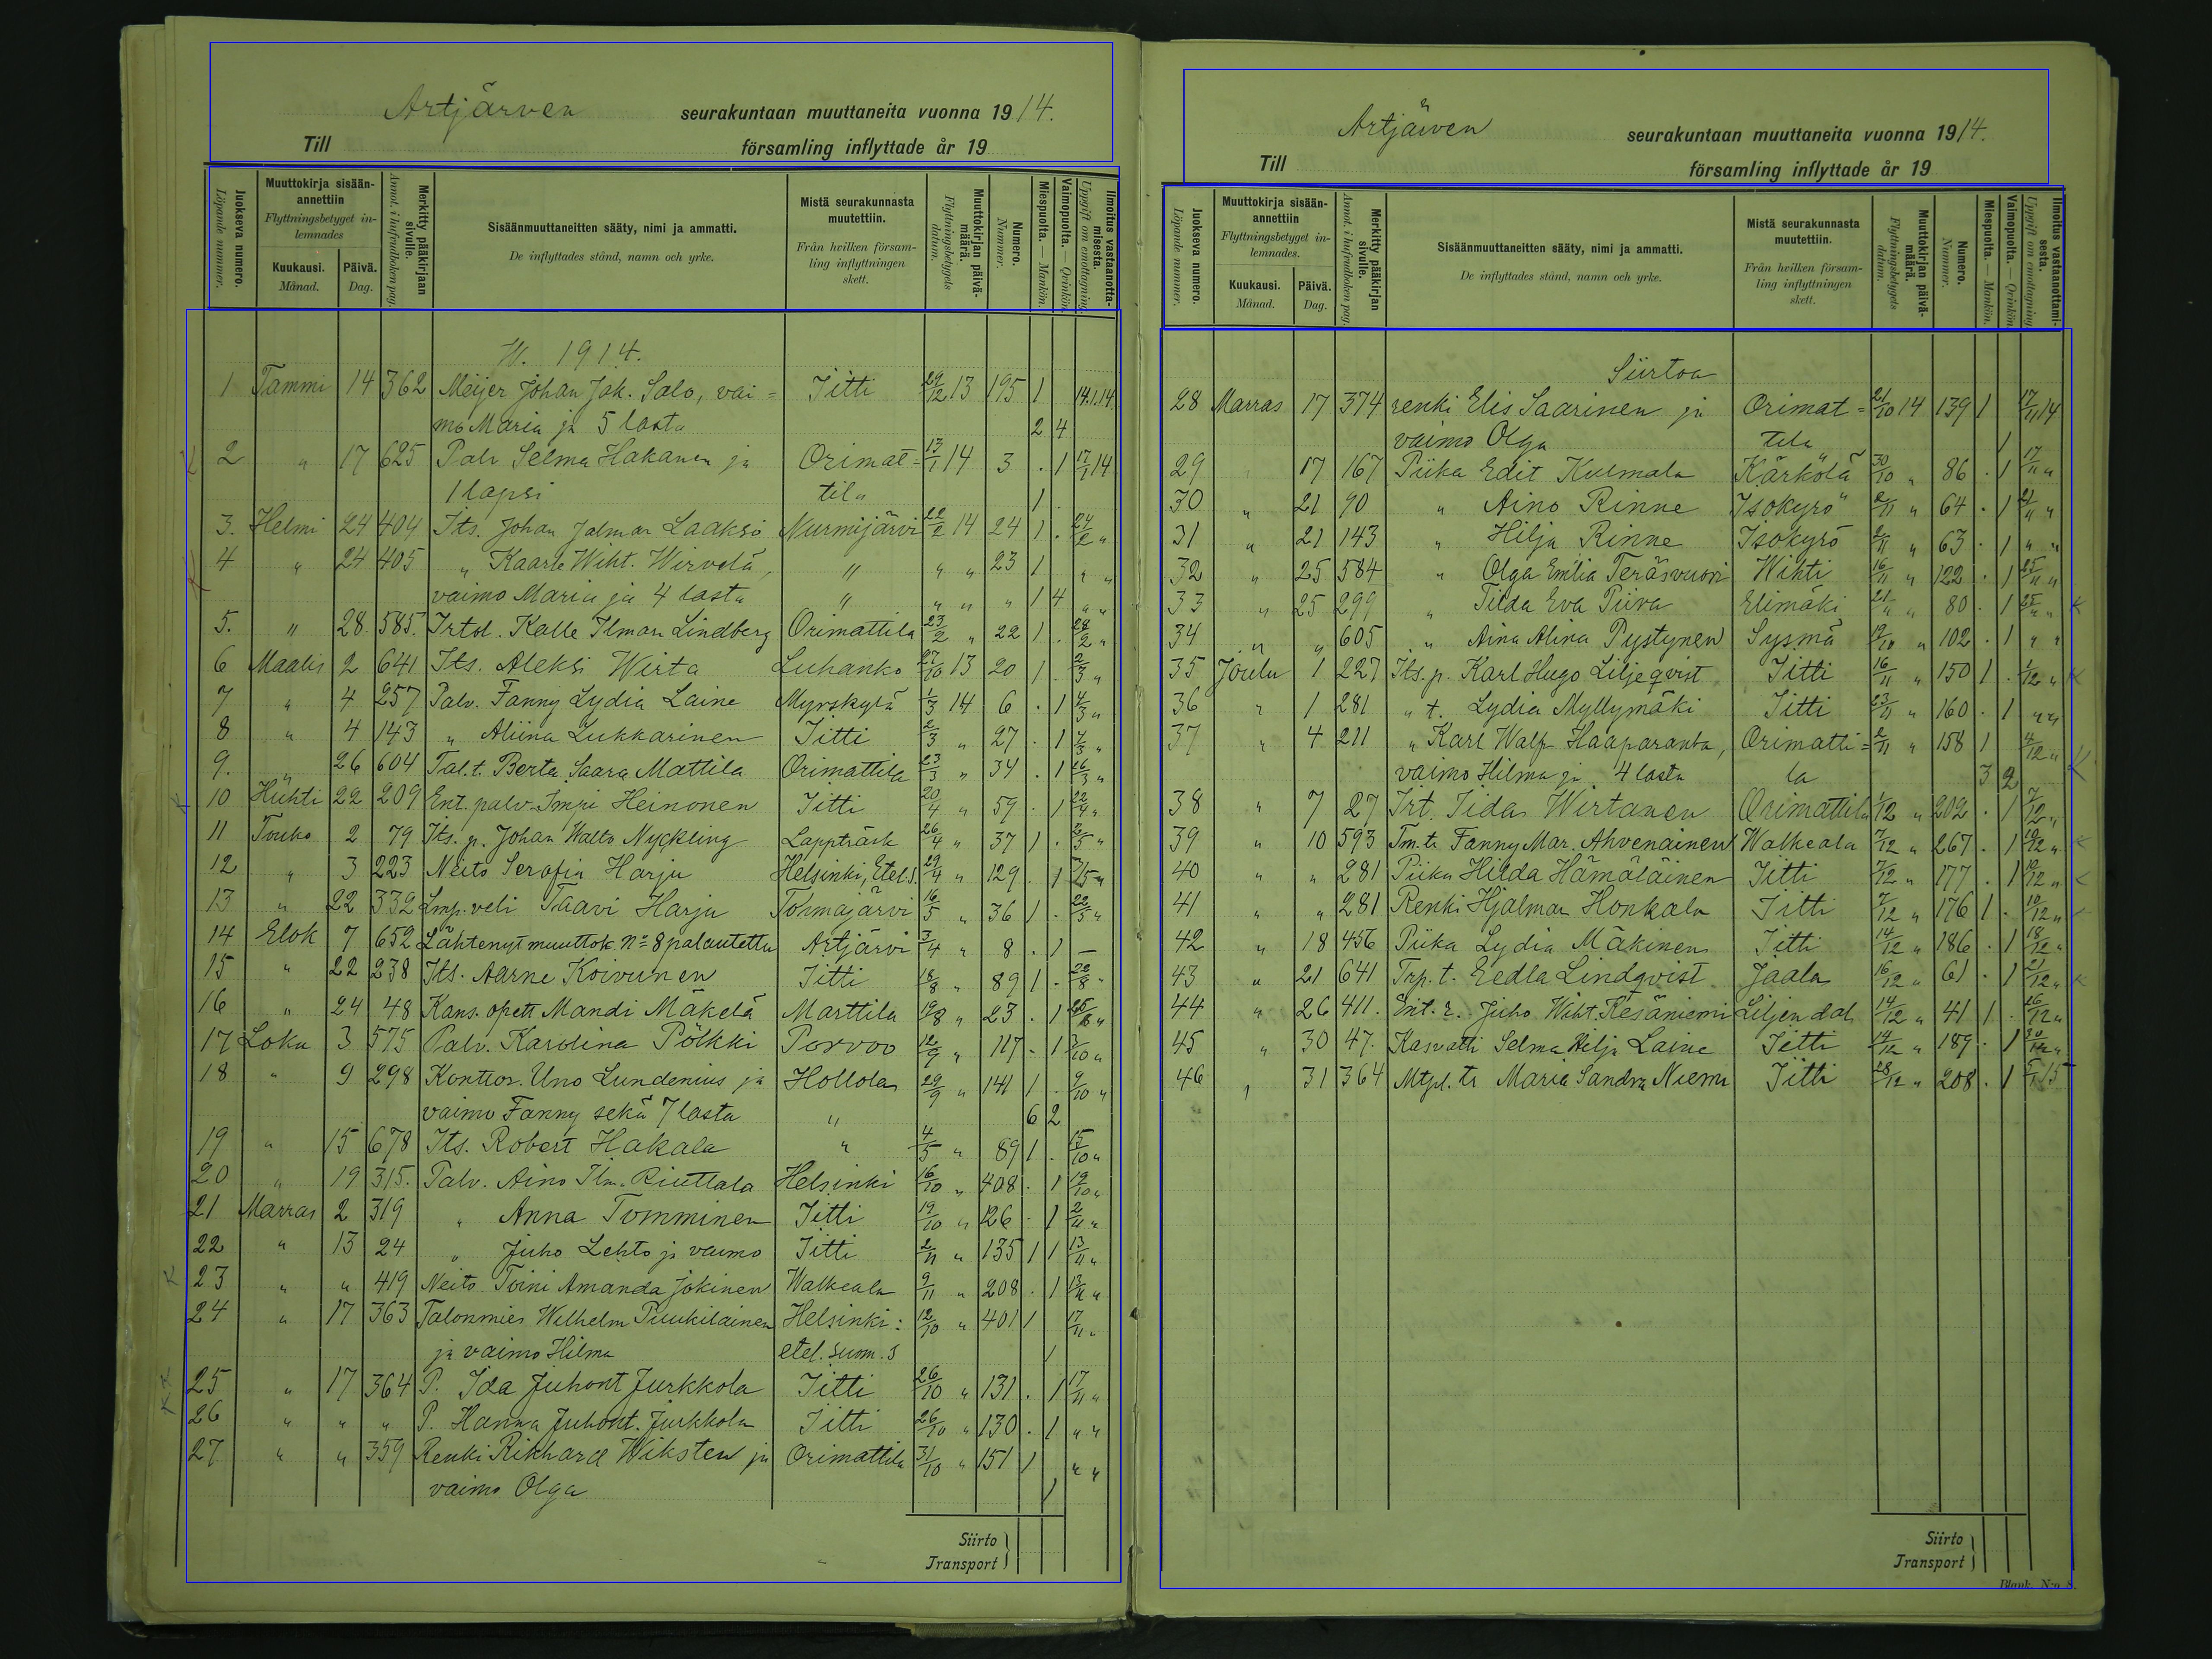 Artjärven seurakuntaan muuttaneita vuonna 1914.
Till församling inflyttade år 19
Juokseva numero. Löpande nummer.
Muuttokirja sisään-annettiin Flyttningsbetyget in-lemnades
Kuukausi. Månad. Päivä. Dag.
Merkitty pääkirjaan sivulle. Annot. i hufvudboken pag.
Sisäänmuuttaneitten sääty, nimi ja ammatti. De inflyttades stånd, namn och yrke.
Mistä seurakunnasta muutettiin. Från hvilken försam-ling inflyttningen skett.
Muuttokirjan päivä-määrä. Flyttningsbetygets datum.
Numero. Nummer.
Miespuolta. — Mankön.
Vaimopuolta. — Qvinkön.
Ilmoitus vastaanotta-misesta. Uppgift om emottagning.
W. 1914.
1 Tammi 14 362 Meijer Johan Jak. Salo, vai= Iitti 29/12 13 195 1 14.1.14.
mo Maria ja 5 lasta 2 4
2 " 17 625 Palv Selma Hakanen ja Orimat= 13/1 14 3 . 1 17/1 14
1 lapsi tila 1 .
3. Helmi 24 404 Its. Johan Jalmar Laakso Nurmijärvi 22/2 14 24 1 . 24/2 "
4 " 24 405 " Kaarle Wiht. Wirvelä, " " " 23 1 " "
vaimo Maria ja 4 lasta " " " " 1 4 " "
5. " 28. 585. Irtol. Kalle Ilmari Lindberg Orimattila 23/2 " 22 1 . 28/2 "
6 Maalis 2 641 Its. Aleksi Wirta Luhanko 27/10 13 20 1 . 2/3 "
7 " 4 257 Palv. Fanny Lydia Laine Myrskylä 1/3 14 6 . 1 4/3 "
8 " 4 143 " Aliina Lukkarinen Iitti 2/3 " 27 . 1 4/3 "
9. " 26 604 Tal.t. Berta Saara Mattila Orimattila 23/3 " 34 . 1 26/3 "
10 Huhti 22 209 Ent. palv. Impi Heinonen Iitti 20/4 " 59 . 1 22/4 "
11 Touko 2 79 Its. p. Johan Walto Nyckling Lappträsk 26/4 " 37 1 . 2/5 "
12 " 3 223 Neito Serafia Harju Helsinki, Etel.S. 29/4 " 129 . 1 3/5 "
13 " 22 332 Lmp. veli Taavi Harju Tohmajärvi 16/5 " 36 1 . 22/5 "
14 Elok 7 652 Lähtenyt muuttok. No 8 palautettu Artjärvi 3/4 " 8 . 1 —
15 " 22 238 Its. Aarne Koivunen Iitti 18/8 " 89 1 . 22/8 "
16 " 24 48 Kans. opett Mandi Mäkelä Marttila 19/8 " 23 . 1 25/8 "
17 Loka 3 575 Palv. Karolina Pölkki Porvoo 12/9 " 117 . 1 3/10 "
18 " 9 298 Konttor. Uno Lundenius ja Hollola 29/9 " 141 1 . 9/10 "
vaimo Fanny sekä 7 lasta " 6 2
19 " 15 678 Its. Robert Hakala " 4/5 " 89 1 . 15/10 "
20 " 19 315. Palv. Aino Ilm. Riuttala Helsinki 16/10 " 408 . 1 19/10 "
21 Marras 2 319 " Anna Tomminen Iitti 19/10 " 126 . 1 2/11 "
22 " 13 24 " Juho Lehto ja vaimo Iitti 2/11 " 135 1 1 13/11 "
23 " " 419 Neito Toini Amanda Jokinen Walkeala 9/11 " 208 . 1 13/11 "
24 " 17 363 Talonmies Wilhelm Puukilainen Helsinki: 12/10 " 401 1 17/11 "
ja vaimo Hilma etel. suom. s 1
25 " 17 364 P. Ida Juhont Jurkkola Iitti 26/10 " 131 . 1 17/11 "
26 " " " P. Hanna Juhont. Jurkkola Iitti 26/10 " 130 . 1 " "
27 " " 359 Renki Rikhard Wiksten ja Orimattila 31/10 " 151 1 " "
vaimo Olga 1
Siirto
Transport
Artjärven seurakuntaan muuttaneita vuonna 1914.
Till församling inflyttade år 19
Juokseva numero. Löpande nummer.
Muuttokirja sisään-annettiin Flyttningsbetyget in-lemnades.
Kuukausi. Månad. Päivä. Dag.
Merkitty pääkirjan sivulle. Annot. i hufvudboken pag.
Sisäänmuuttaneitten sääty, nimi ja ammatti. De inflyttades stånd, namn och yrke.
Mistä seurakunnasta muutettiin. Från hvilken försam-ling inflyttningen skett.
Muuttokirjan päivä-määrä. Flyttningsbetygets datum.
Numero. Nummer.
Miespuolta. — Mankön.
Vaimopuolta. — Qvinkön.
Ilmoitus vastaanottami-sesta. Uppgift om emottagning
Siirtoa
28 Marras 17 374 renki Elis Saarinen ja Orimat= 21/10 14 139 1 17/11 14
vaimo Olga tila 1
29 17 167 Piika Edit Kulmala Kärkölä 30/10 " 86 . 1 17/11 "
30 " 21 90 " Aino Rinne Isokyrö 2/11 " 64 . 1 21/11 "
31 " 21 143 " Hilja Rinne Isokyrö 2/11 " 63 . 1 " "
32 " 25 584 " Olga Emilia Teräsvuori Wihti 16/11 " 122 . 1 25/11 "
33 " 25 299 " Tilda Eva Piira Elimäki 21/11 " 80 . 1 25/" "
34 " " 605 " Aina Alina Pystynen Sysmä 19/10 " 102 . 1 " "
35 Joulu 1 227 Its. p. Karl Hugo Liljeqvist Iitti 16/11 " 150 1 . 1/12 "
36 " 1 281 " t. Lydia Myllymäki Iitti 23/11 " 160 . 1 " "
37 " 4 211 " Karl Walfr Haaparanta, Orimatti= 2/11 " 158 1 4/12 "
vaimo Hilma ja 4 lasta la 3 2
38 " 7 27 Irt. Iida Wirtanen Orimattila 1/12 " 202 . 1 7/12 "
39 " 10 593 Tm. tr Fanny Mar. Ahvenainen Walkeala 7/12 " 267 . 1 10/12 "
40 " " 281 Piika Hilda Hämäläinen Iitti 7/12 " 177 . 1 10/12 "
41 " " 281 Renki Hjalmar Honkala Iitti 7/12 " 176 1 . 10/12 "
42 " 18 456 Piika Lydia Mäkinen Iitti 14/12 " 186 . 1 18/12 "
43 " 21 641 Trp. t. Eedla Lindqvist Jaala 16/12 " 61 . 1 21/12 "
44 " 26 411. Ent. r. Juho Wiht. Kesäniemi Liljendal 14/12 " 41 1 . 26/12 "
45 " 30 47. Kasvatti Selma Hilja Laine Iitti 14/12 " 189 . 1 30/12 "
46 31 364 Mtpl. tr Maria Sandra Niemi Iitti 28/12 " 208 . 1 5/1 15
Siirto
Transport
Blank. N:o 8.